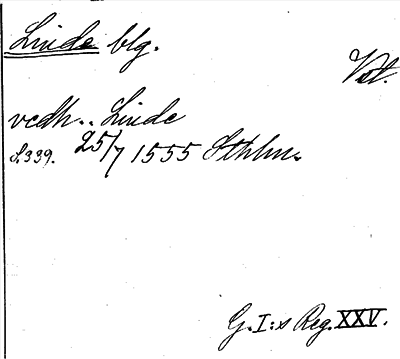 Linde blg.
Vstl.
vedh.. Linde
S.339. 25/7 1555 Sthlm.
G.I:s Reg. XXV.